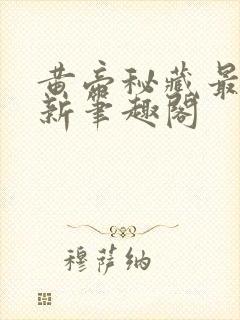 黄帝秘藏 最
新笔趣阁
穆萨纳